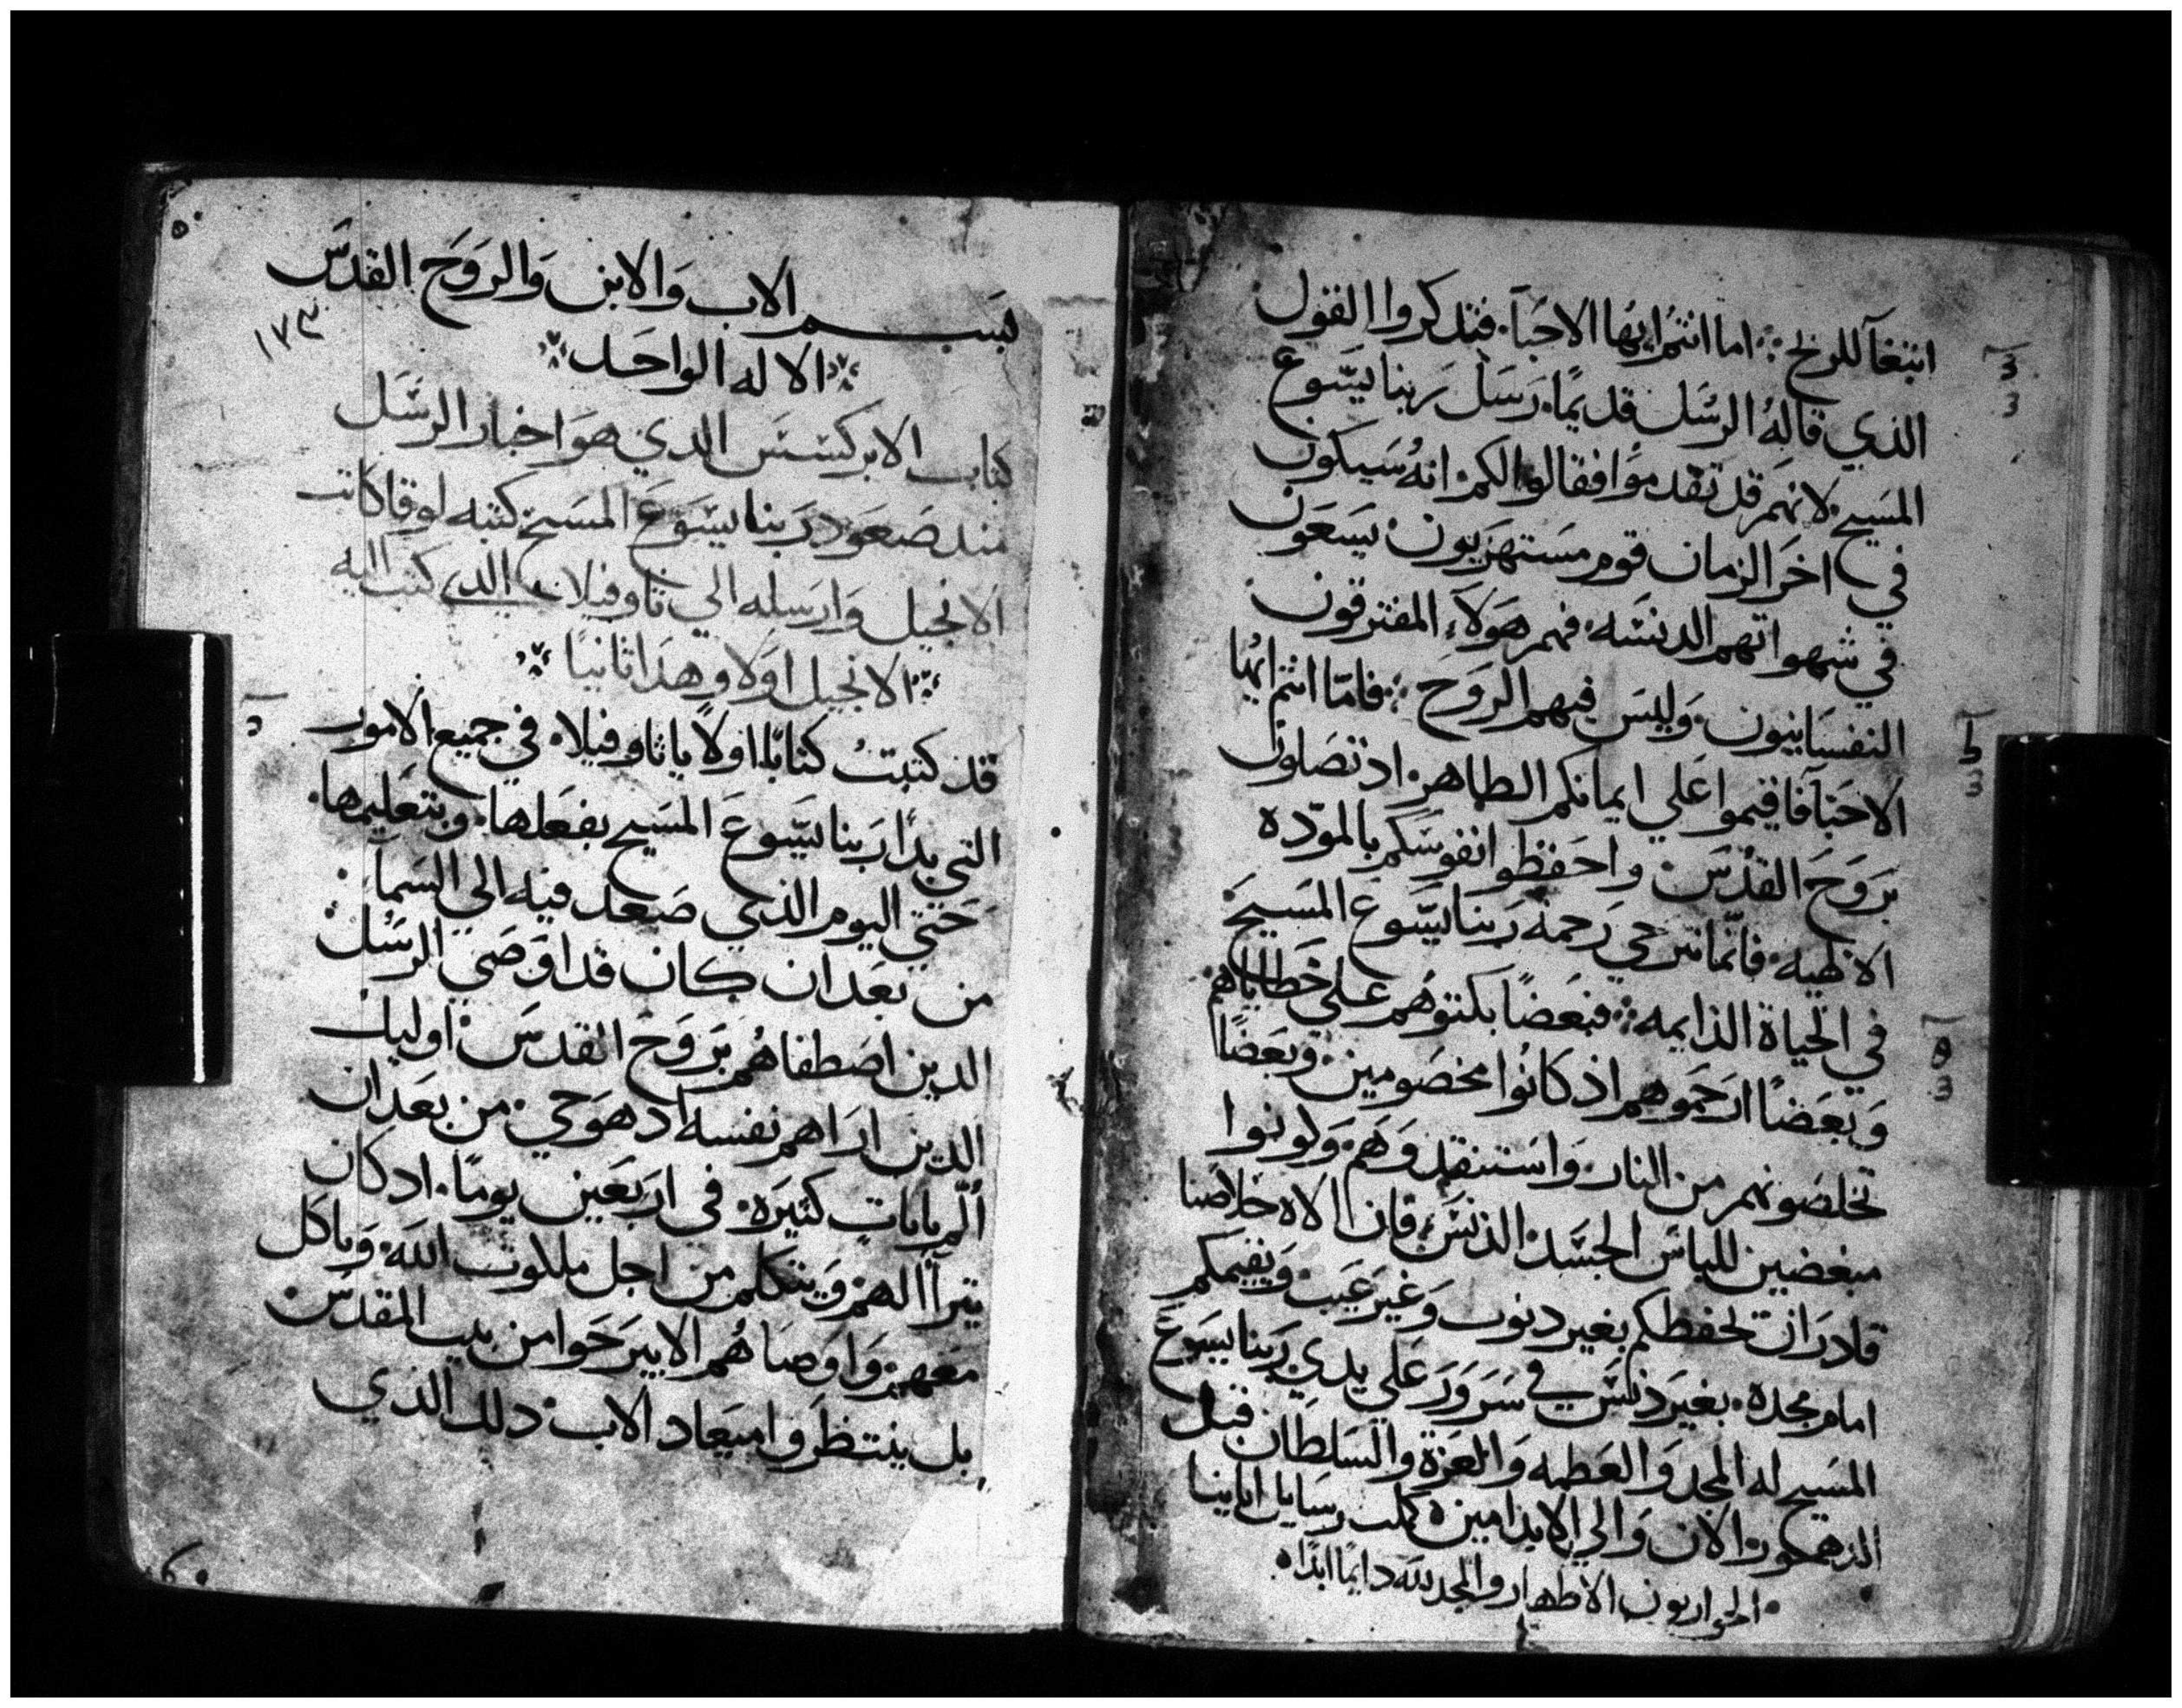 ابتغآ للربح ؛ اما انتم ايها الاحبآ. فتذكروا القول
الذي قاله الرسل قديمًا. رسل ربنا يسوع
المسيح لانهم قد تقدموا فقالوا لكم انه سيكون
في اخر الزمان قوم مستهزيون يسعون
في شهواتهم الدنسه. فهم هولاء المفترقون
النفسانيون. وليس فيهم الروح ؛ فامّا انتم ايها
الاحبآ فاقيموا علي ايمانكم الطاهر. اذ تصلون
بروح القدس واحفظوا انفوسكم بالمودّه
الالهيه. فانّما نترجي رحمة ربنا يسوع المسيح
في الحياة الدايمه ؛ فبعضًا بكتوهم علي خطاياهم
وبعضًا ارحموهم اذ كانوا مخصومين. وبعضًا
تخلصونهم من النار. واستنقدوهم. وكونوا
مبغضين للباس الجسد الدنس. فان الاه خلاصنا
قادر ان يحفظكم بغير دنوب وغير عيب. ويقيمكم
امام مجده. بغير دنس في سرور علي يدي ربنا يسوع
المسيح له المجد والعظمه والعزة والسلطان قبل
الدهور والان والي الابد امين. كملت رسايل اباينا
الحواريون الاطهار والمجد لله دايمًا ابدًا.
بسم الاب والابن والروح القدس
١٧٣
الاله الواحد
كتاب الابركسس الدي هو اخبار الرسل
مند صعود ربنا يسوع المسيح كتبه لوقا كاتب
الانجيل وارسله الي تاوفيلا الدي كتب اليه
الانجيل اولا وهدا ثانيًا
قد كتبتُ كتابًا اولاً يا ثاوفيلا. في جميع الامور
التي بدا ربنا يسوع المسيح بفعلها. وبتعليمها.
حتي اليوم الذي صعد فيه الي السما.
من بعد ان كان قد اوصي الرسل
الدين اصطفاهم بروح القدس. اوليك
الدين اراهم نفسه اد هو حي. من بعد ان
ألّم باياتٍ كثيره. في اربعين يومًا. اد كان
يترأا لهم ويتكلم من اجل ملكوت الله. وياكل
معهم. واوصاهم الا يبرحوا من بيت المقدس
بل ينتظروا ميعاد الاب. دلك الذي